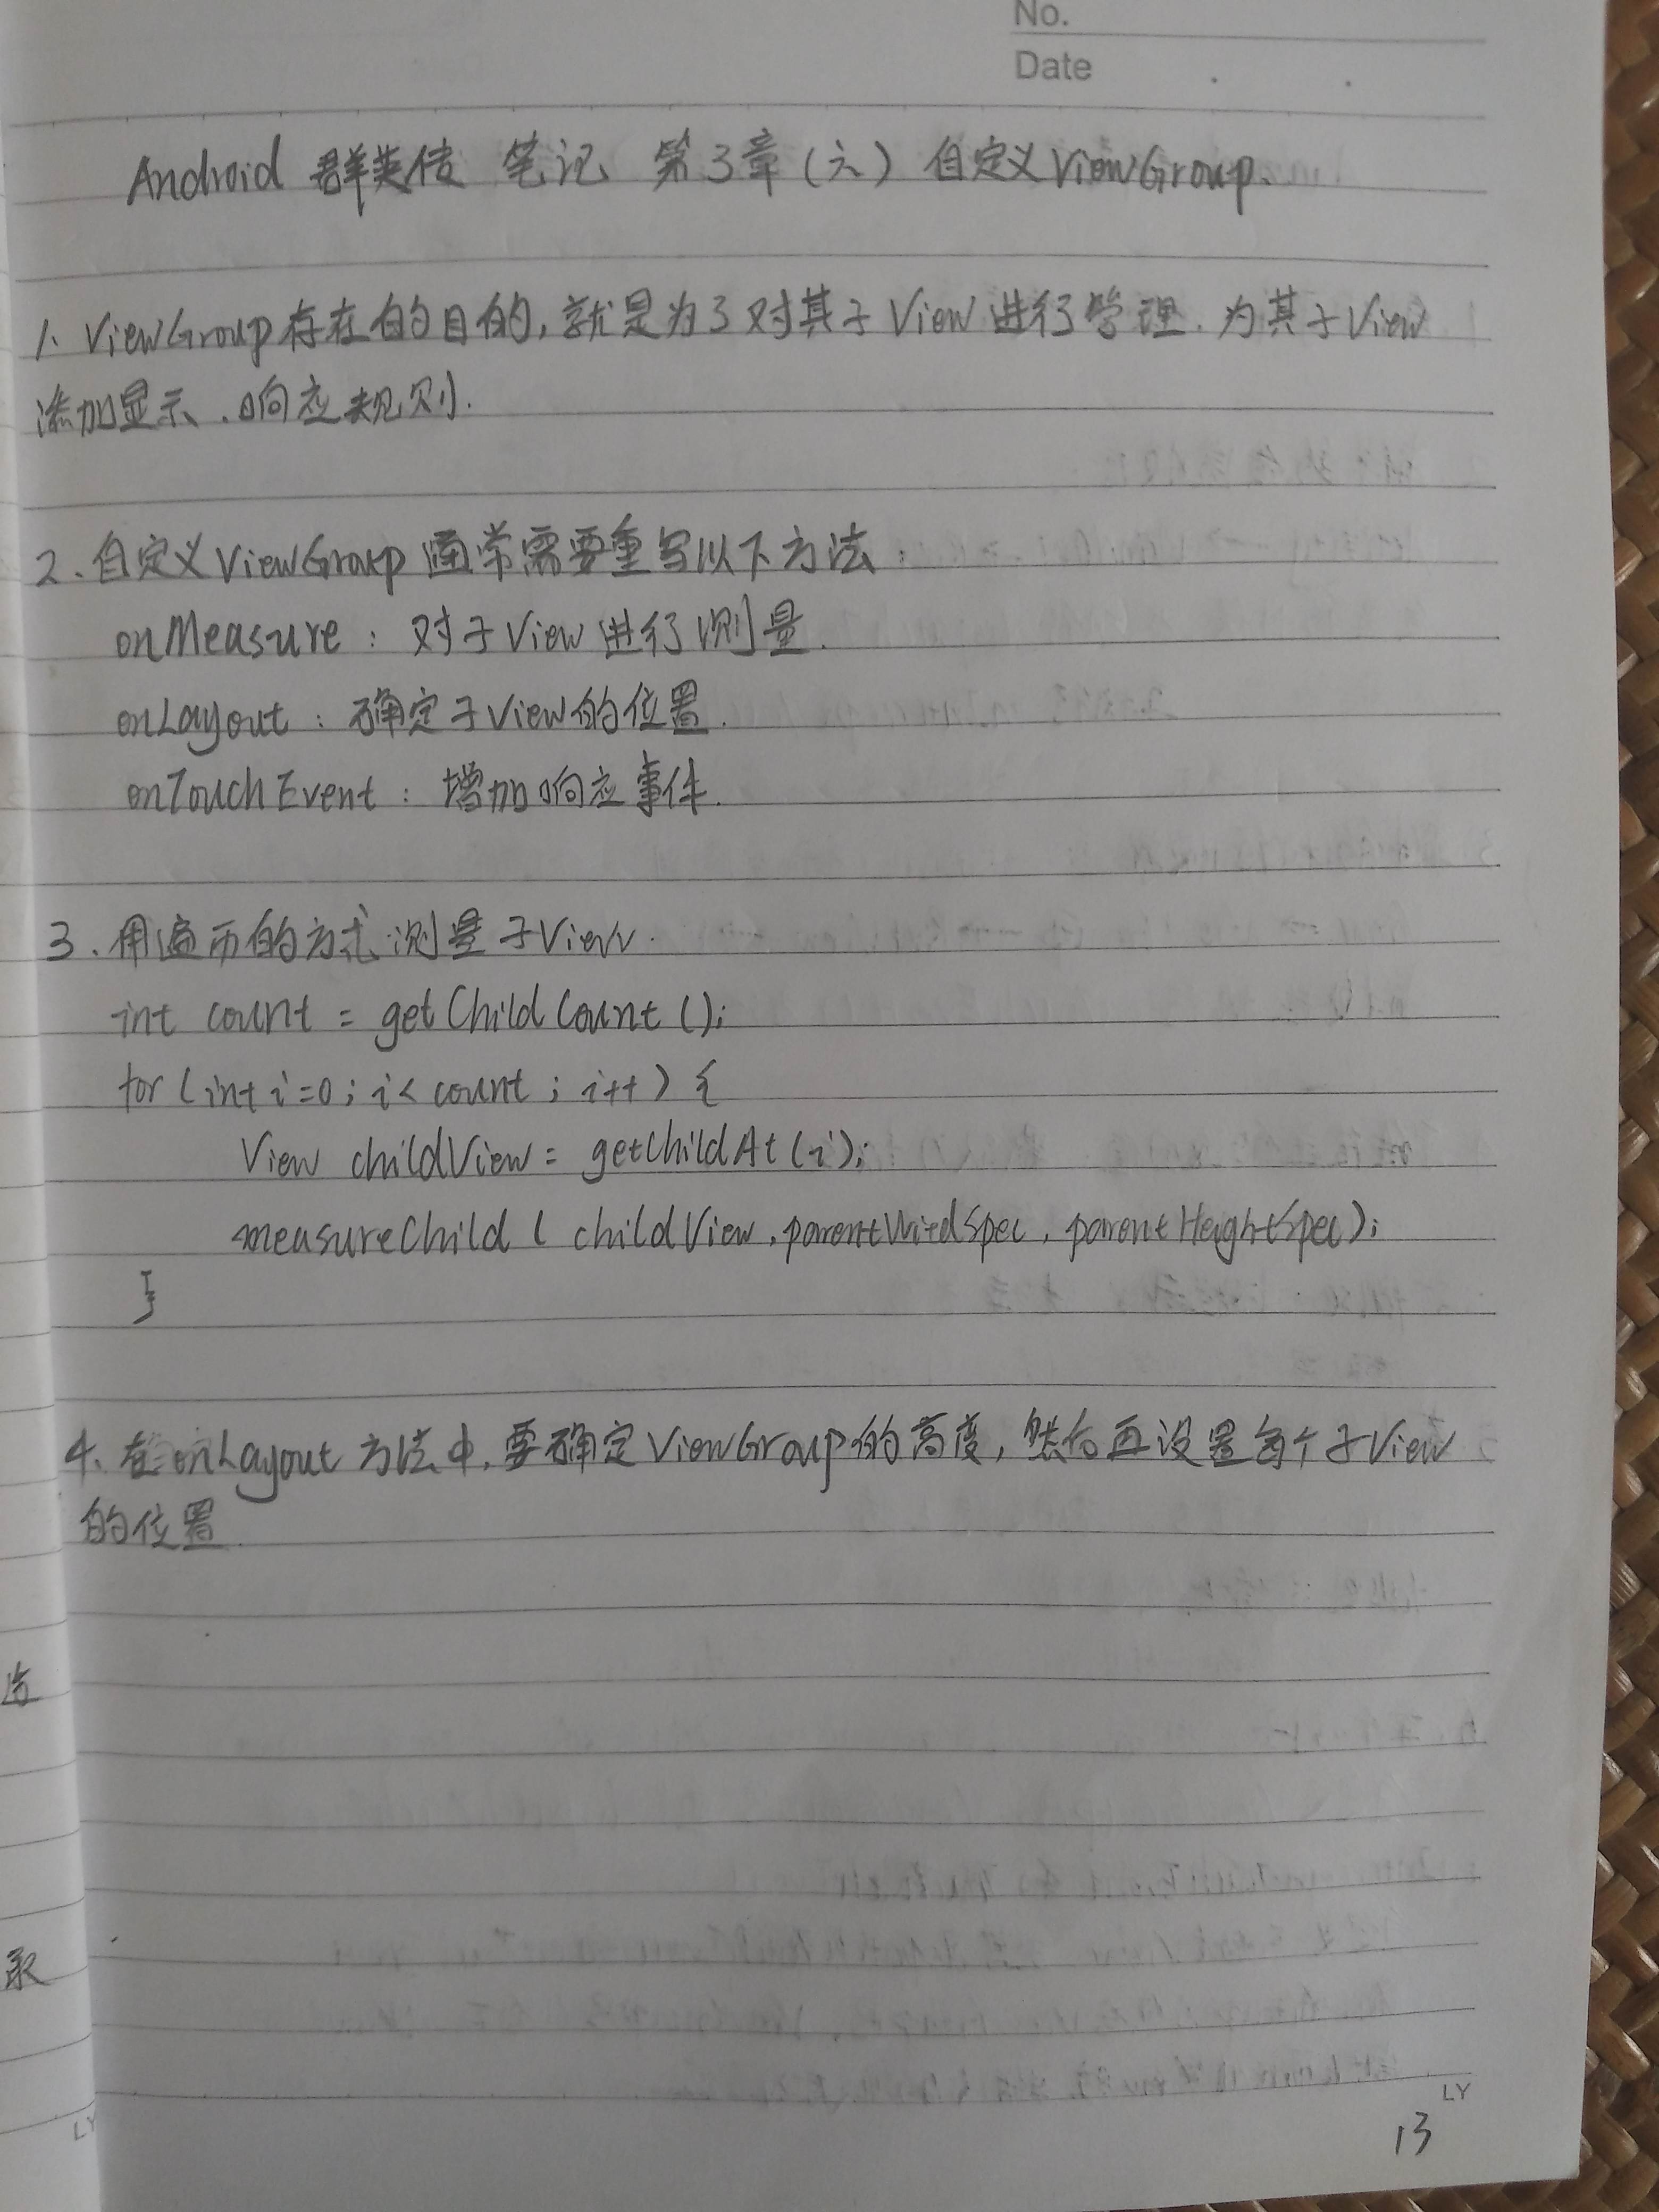 No.
Date
Android 群英传 笔记 第3章(六) 自定义ViewGroup.
1. ViewGroup存在的目的,就是为了对其子View进行管理.为其子View
添加显示.响应规则.
2.自定义ViewGroup通常需要重写以下方法:
onMeasure: 对子View进行测量.
onLayout: 确定子View的位置.
onTouchEvent: 增加响应事件.
3.用遍历的方式测量子View.
int count = getChildCount();
for (int i=0; i< count; i++) {
View childView = getChildAt(i);
measureChild ( childView, parentWitdSpec, parentHeightSpec);
}
4.在onLayout方法中,要确定ViewGroup的高度,然后再设置每个子View
的位置.
LY
13
取
LY